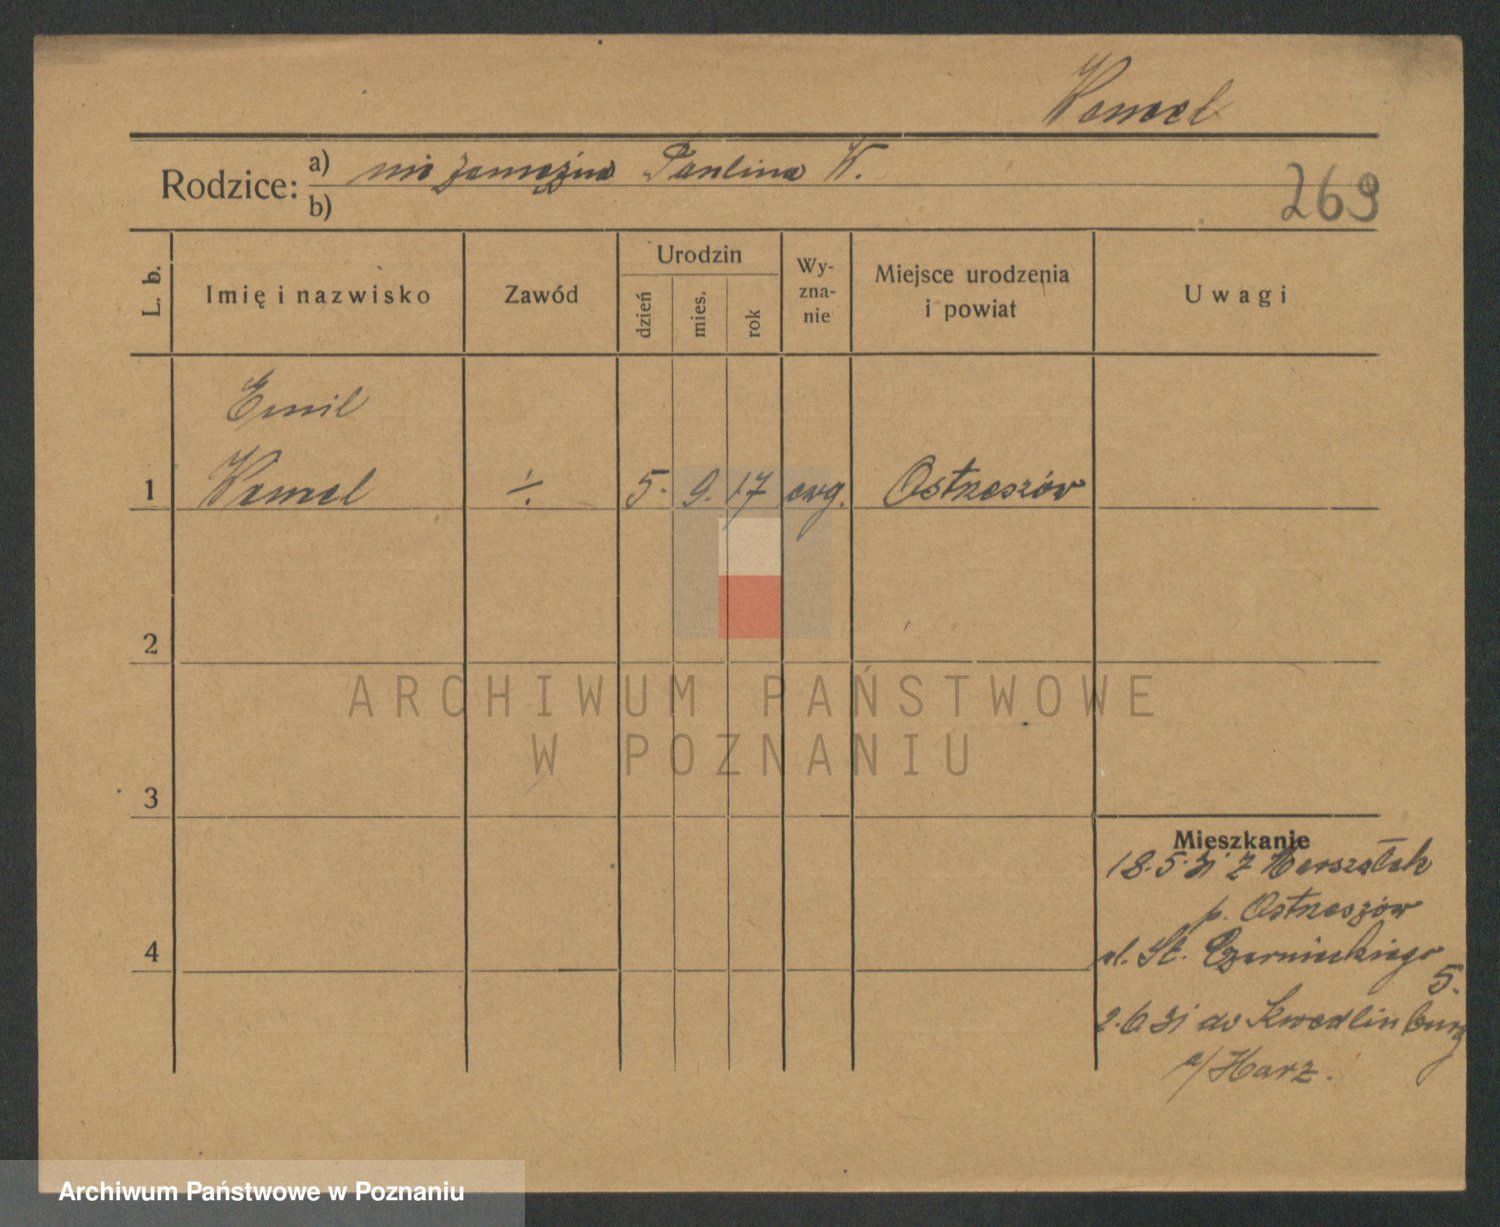 Wemel
Rodzice:
a) nie zamężna Paulina W.
b)
269
L. b.
Imię i nazwisko
Zawód
Urodzin
dzień
mies.
rok
Wy-
zna-
nie
Miejsce urodzenia
i powiat
Uwagi
Emil
1 Wemel ÷ 5. 9. 17 ewg. Ostrzeszów
2
ARCHIWUM PAŃSTWOWE
W POZNANIU
3
Mieszkanie
18.5.31 z
p. Ostrzeszów
ul. St. Czarnieckiego
4
5.
2.6.31 do Kwedlinburg
a/Harz.
Archiwum Państwowe w Poznaniu